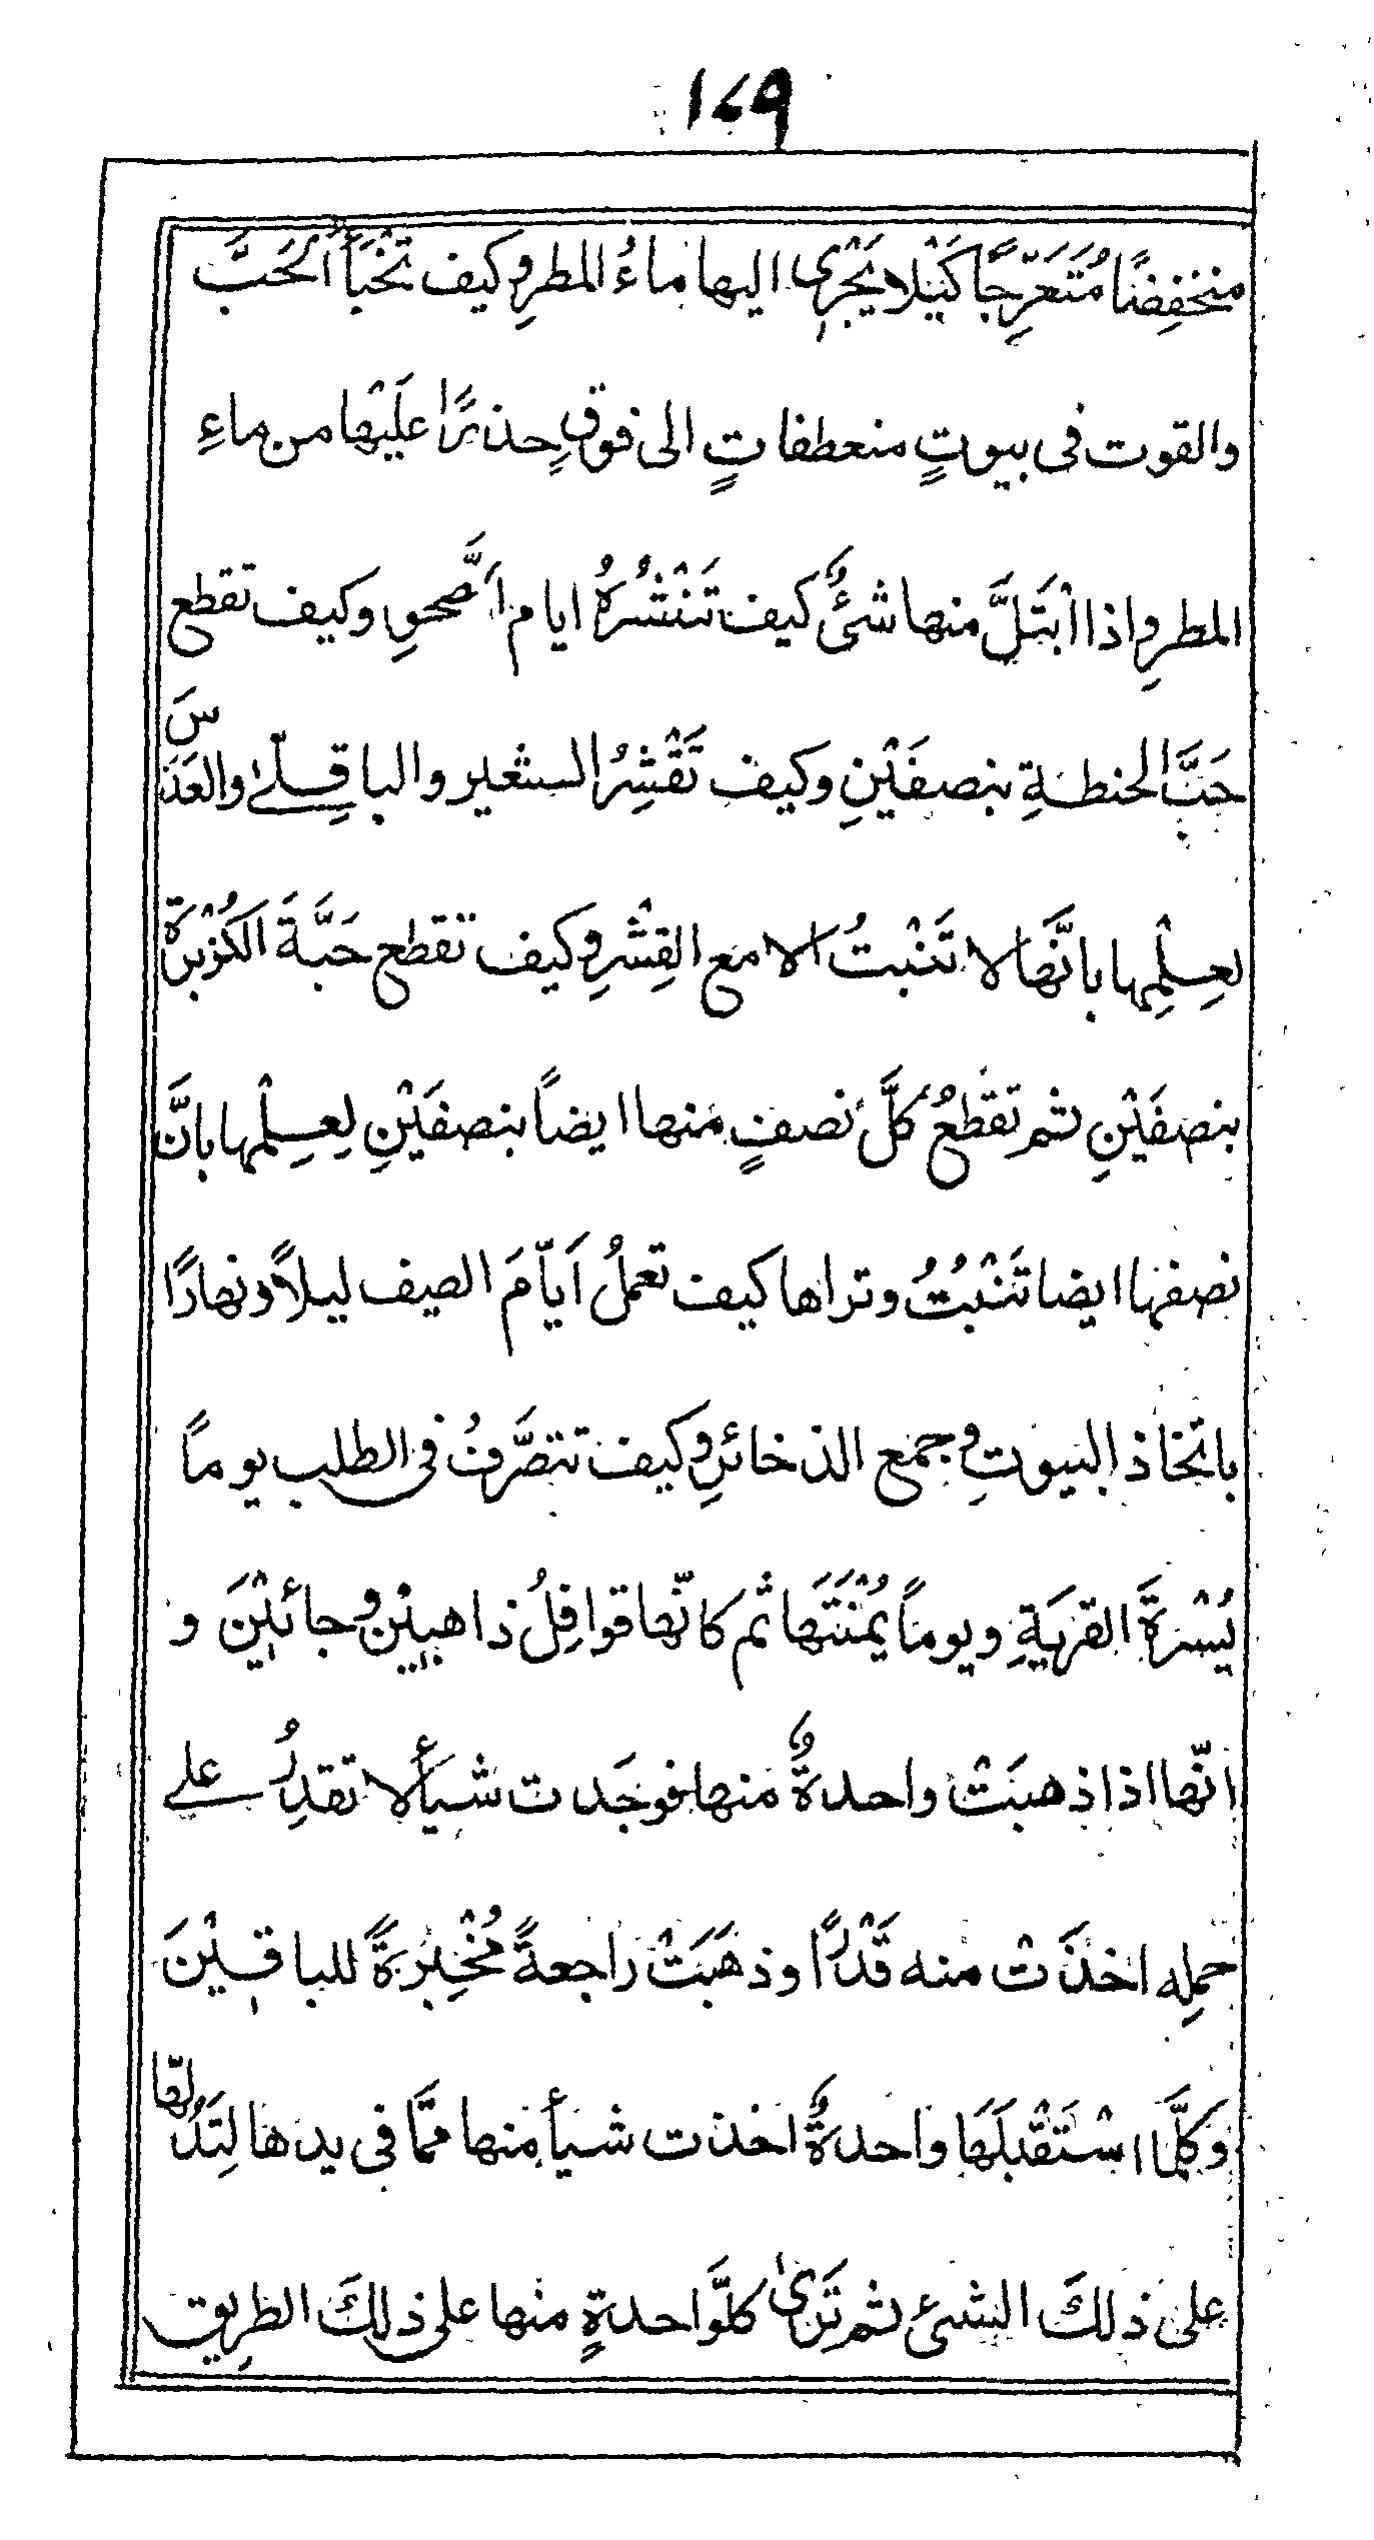 ١٧٩
منخفِضًا مُتَعَرِّجًا كَيْلا يَجْرِى اليها ماءُ المطرِ وكيف تَخْبَأُ الحَبَّ
والقوت فى بيوتٍ منعطفاتٍ الى فوقٍ حذرًا عليْها من ماءِ
المطرِ واذا ابْتَلَّ منها شئٌ كيف تَنْشُرُهُ ايام الصَّحوِ وكيف تقطع
حَبَّ الحنطةِ بنصفَيْنِ وكيف تَقْشِرُ الشعير والباقِلّىٰ والعَدَسَ
لعِلْمِها بانَّها لا تَنْبتُ الا مع القِشْرِ وكيف تقطع حَبَّةَ الكُزْبَرَة
بنصفَيْنِ ثم تقطعُ كلَّ نصفٍ منها ايضاً بنصفَيْنِ لِعِلْمِها بانَّ
نصفها ايضا تَنْبُتُ وتراها كيف تعملُ اَيّامَ الصيف ليلاً ونهارًا
باتخاذ البيوتِ وجمع الذخائرِ وكيف تتصَّرفُ فى الطلب يوماً
يُسْرَةَ القريَةِ ويوماً يُمْنَتَها ثم كانّها قوافِلُ ذاهبيْن وجائيْنَ و
انّها اذا ذهبَتْ واحدةٌ منها فوجَدت شيأً لا تقدِرُ علے
حملِه اخذَتْ منه قَدْرًا وذهَبَتْ راجعةً مُخْبِرَةً للباقيْنَ
وكلَّما اسْتَقْبلَهَا واحدةٌ اخذت شيأً منها ممَّا فى يدها لِتَدُلّها
على ذلكَ الشئ ثم تَرىٰ كلَّ واحدةٍ منها على ذلِكَ الطرِيق